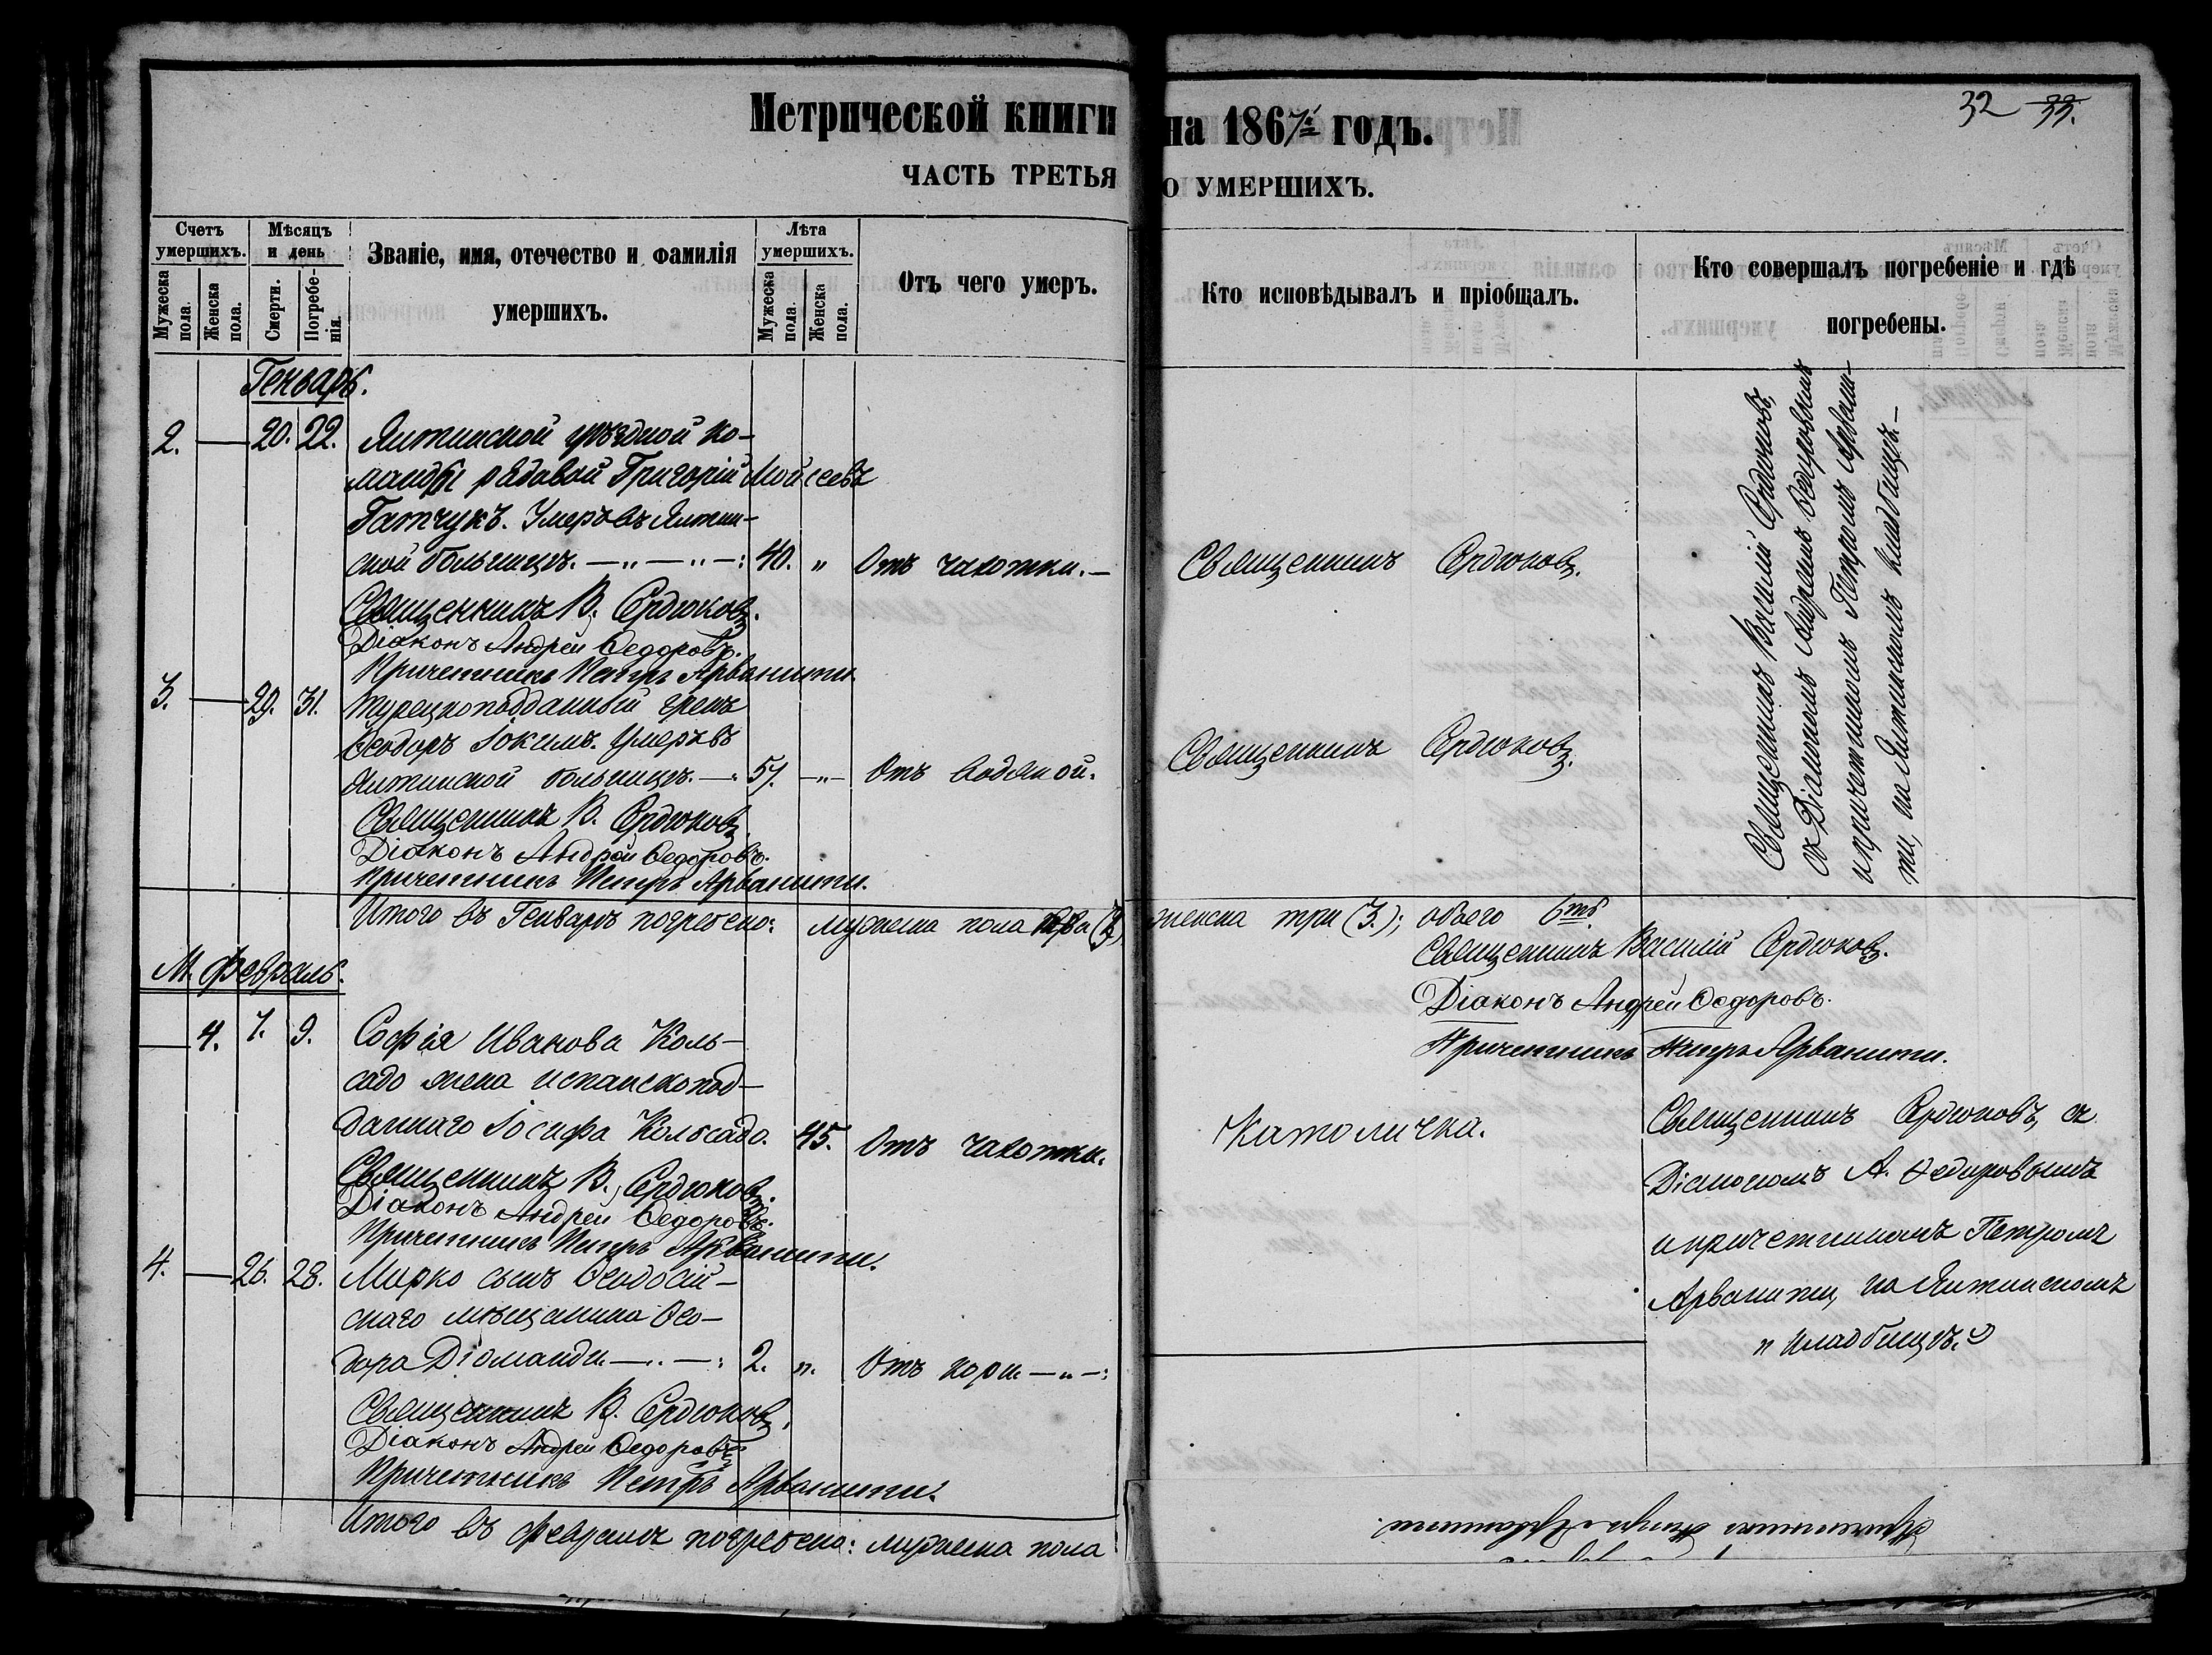 Метрической книги на 1867й годъ.
32 33.
ЧАСТЬ ТРЕТЬЯ О УМЕРШИХЪ.
Счетъ умершихъ.
Мужеска пола.
Женска пола.
Мѣсяцъ и день
Смерти.
Погребенія.
Званіе, имя, отечество и фамилія
умершихъ.
Лѣта умершихъ.
Мужеска пола.
Женска пола.
Отъ чего умеръ.
Кто исповѣдывалъ и пріобщалъ.
Кто совершалъ погребеніе и гдѣ
погребены.
Генварь.
2. — 20. 22. Ялтинской уѣздной ко-
манды рядовой Григорій Мойсеевъ
Гатчукъ. Умеръ въ Ялтин-
ской больницѣ. — „ — „ —: 40. „ Отъ чахотки. — Священникъ Сердюковъ.
Священникъ В. Сердюковъ.
Діаконъ Андрей Ѳедоровъ.
Причетникъ Петръ Арванити.
3. — 29. 31. Турецкоподданный грекъ
Ѳеодоръ Іокимъ. Умеръ въ
Ялтинской больницѣ. —: 51. —„— Отъ водяной. Священникъ Сердюковъ.
Священникъ В. Сердюковъ.
Діаконъ Андрей Ѳедоровъ.
Причетникъ Петръ Арванити.
Священникъ Василій Сердюковъ,
съ Діакономъ Андреемъ Ѳедоровымъ
и причетникомъ Петромъ Арвани-
ти, на Ялтинскомъ кладбищѣ. —
Итого въ Генварѣ погребено: мужеска пола (3), женска три (3.); обоего 6ть.
Священникъ Василій Сердюковъ.
Діаконъ Андрей Ѳедоровъ.
Причетникъ Петръ Арванити.
М. Февраль.
— 4. 7. 9. Софія Иванова Коль-
садо жена испанскопод-
даннаго Іосифа Кольсадо. 45. Отъ чахотки. Католичка.
Священникъ В. Сердюковъ.
Діаконъ Андрей Ѳедоровъ.
Причетникъ Петръ Арванити.
4. — 26. 28. Марко сынъ Ѳеодосій-
скаго мѣщанина Ѳео-
дора Діоманди. — „ —: 2. „. Отъ кори. — „ —:
Священникъ В. Сердюковъ.
Діаконъ Андрей Ѳедоровъ
Причетникъ Петръ Арванити.
Священникъ Сердюковъ, съ
Діакономъ А. Ѳедоровымъ
и причетникомъ Петромъ
Арванити, на Ялтинскомъ
„ кладбищѣ.
Итого въ Февралѣ погребено: мужеска пола
Причетникъ Петръ Арванити.